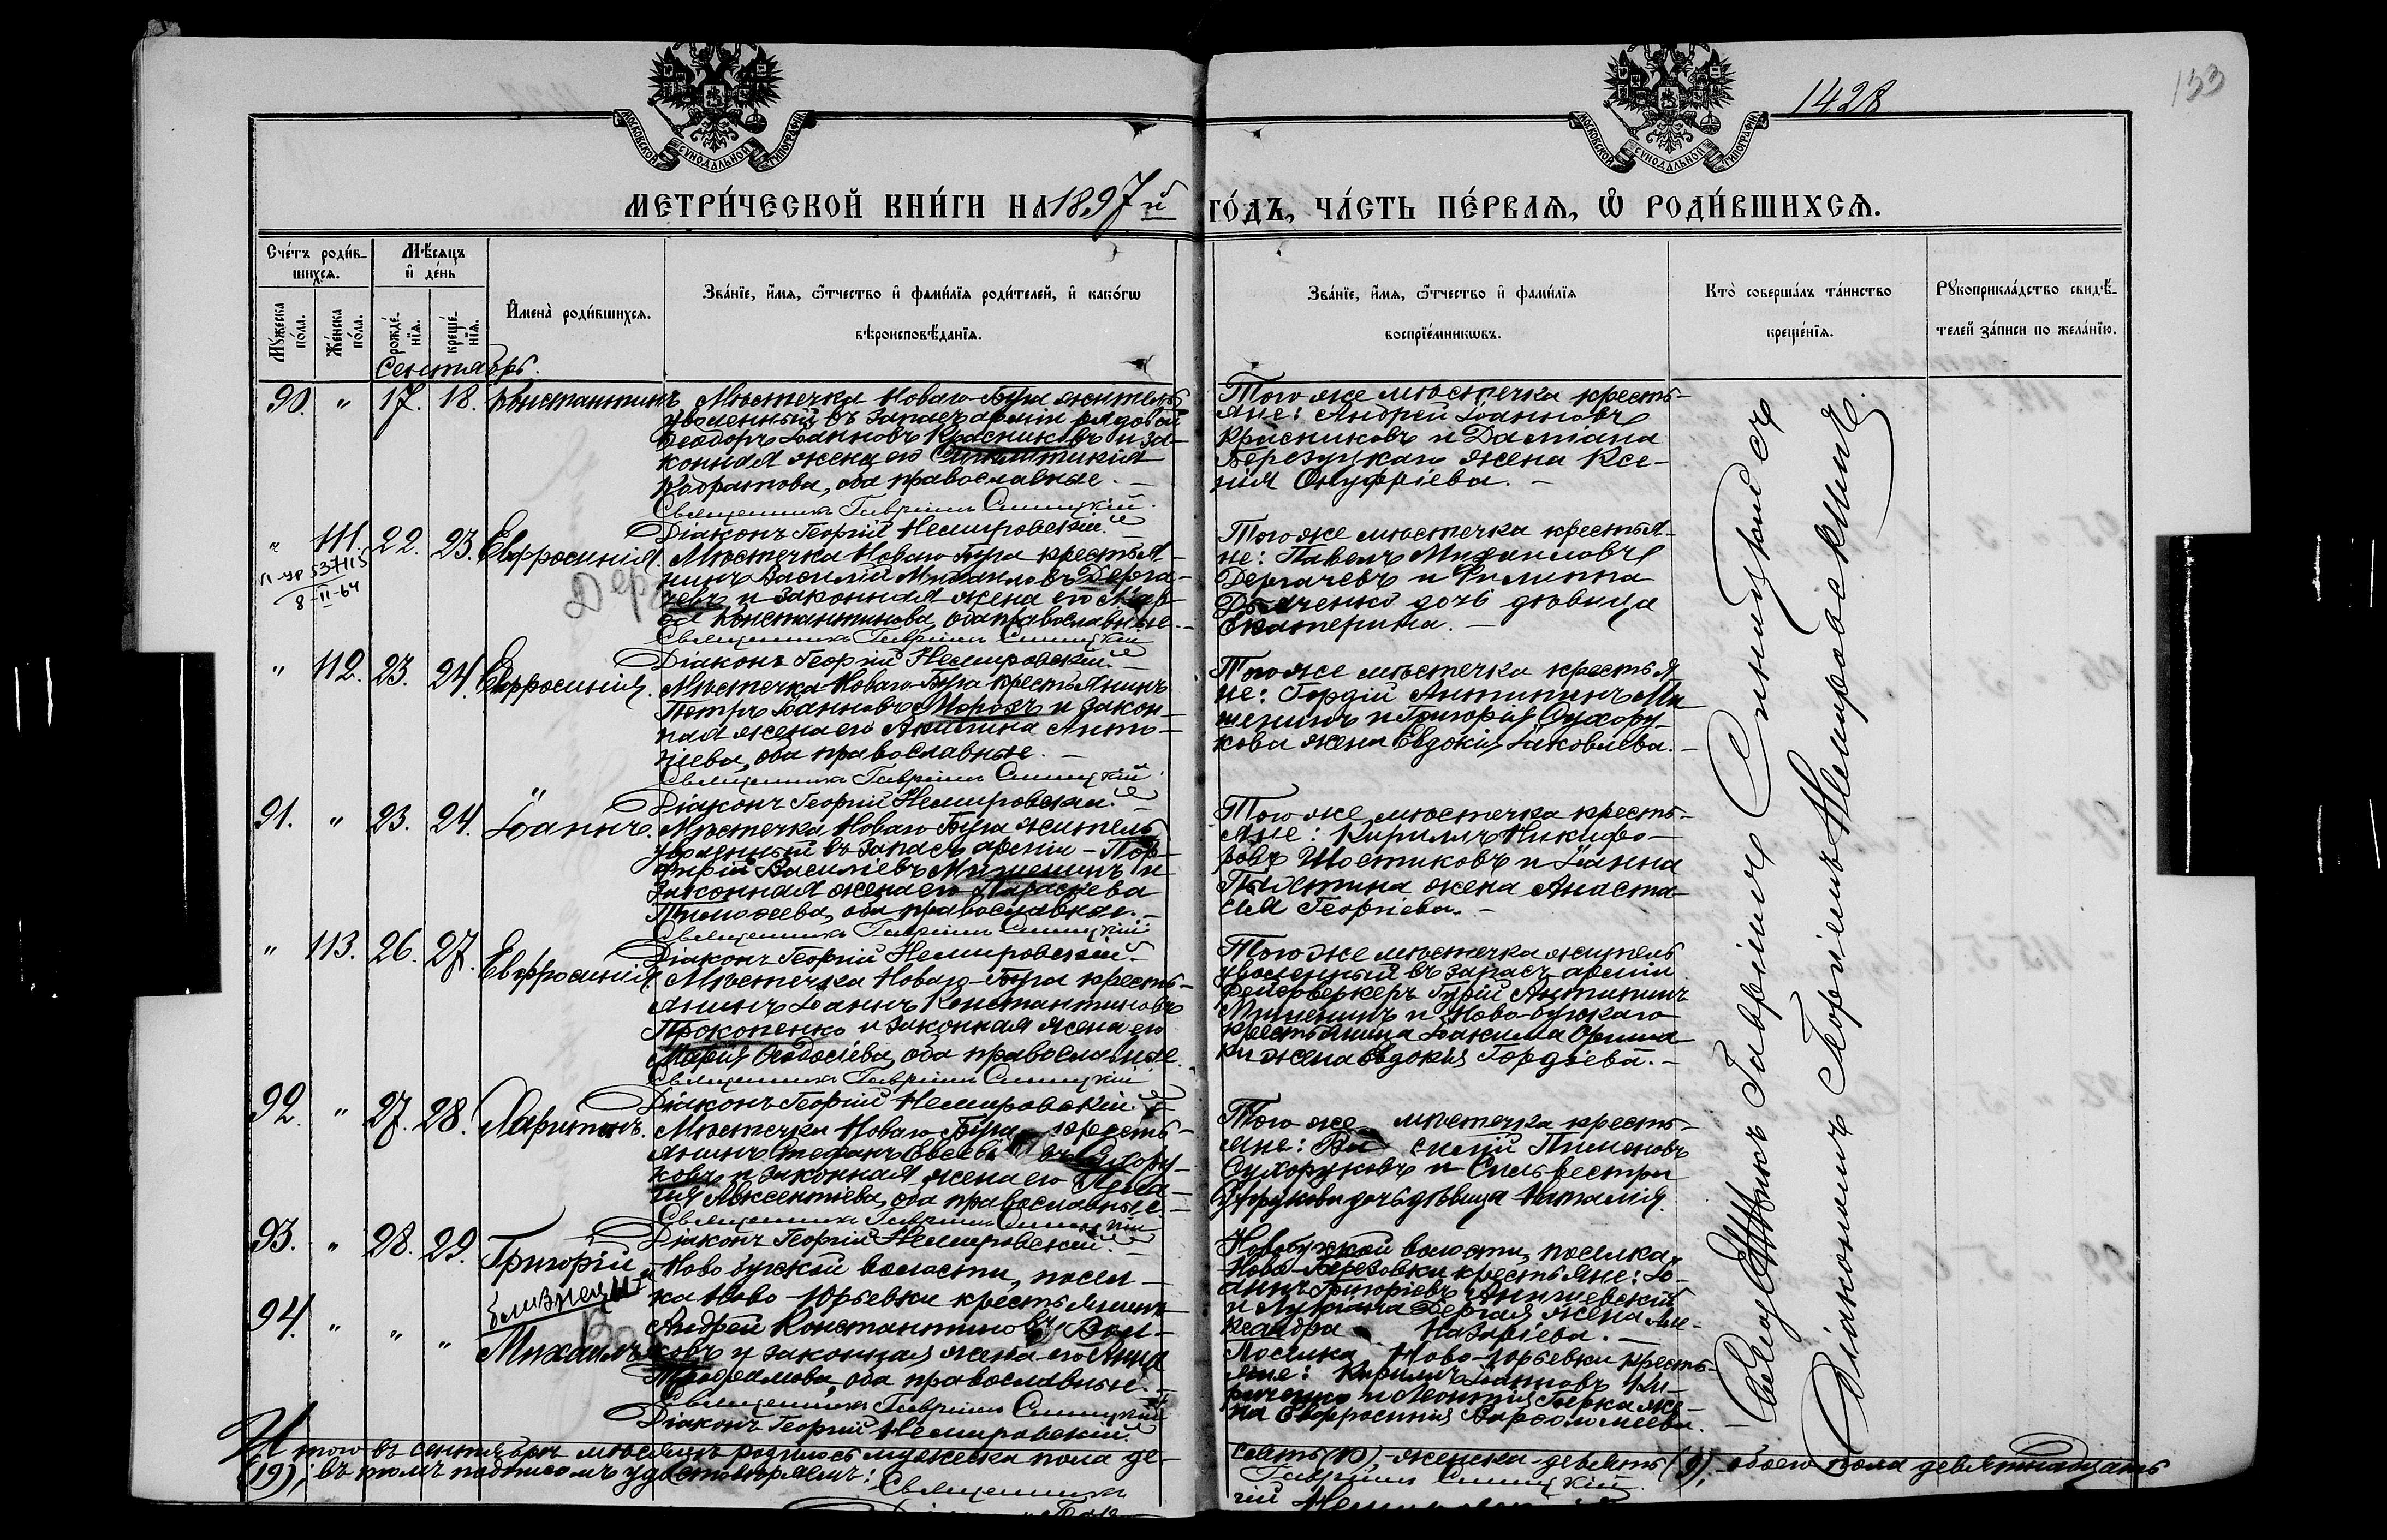 133
1428
МОСКОВСКОЙ СѴНОДАЛЬНОЙ ТИПОГРАФІИ
МОСКОВСКОЙ СѴНОДАЛЬНОЙ ТИПОГРАФІИ
МЕТРИ́ЧЕСКОЙ КНИ́ГИ НА 1897й ГО́ДЪ, ЧА́СТЬ ПЕ́РВАѦ, Ѡ҆ РОДИ́ВШИХСѦ.
Сче́тъ роди́в-
шихсѧ.
Мѣ́сѧцъ
и҆ де́нь
Мꙋ́жеска по́ла.
Же́нска по́ла.
рожде́нїѧ.
креще́нїѧ.
И҆мена̀ роди́вшихсѧ.
Зва́нїе, и҆́мѧ, ѻ҆́тчество и҆ фами́лїѧ роди́телей, и҆ како́гѡ
вѣроисповѣ́данїѧ.
Зва́нїе, и҆́мѧ, ѻ҆́тчество и҆ фами́лїѧ
воспрїе́мникѡвъ.
Кто̀ соверша́лъ та́инство
креще́нїѧ.
Рꙋкоприкла́дство свидѣ́-
телей за́писи по жела́нїю.
Сентябрь.
90. " 17. 18. Константинъ
Мѣстечка Новаго-Буга житель
уволенный въ запасъ арміи рядовой
Ѳеодоръ Іоанновъ Красниковъ и за-
конная жена его Синклитикія
Кодратова, оба православные. —
Священникъ Гавріилъ Синицкій.
Діаконъ Георгій Немировскій.
Того же мѣстечка кресть-
яне: Андрей Іоанновъ
Красниковъ и Даміана
Березуцкаго жена Ксе-
нія Онуфріева. —
" 111. 22. 23. Евфросинія.
п-ур 537115
8-II-64
Дер
Мѣстечка Новаго-Буга крестья-
нинъ Василій Михаиловъ Дерга-
чевъ и законная жена его
Константинова, оба православные. —
Священникъ Гавріилъ Синицкій
Діаконъ Георгій Немировскій.
Того же мѣстечка крестья-
не: Павелъ Михаиловъ
Дергачевъ и Филиппа
Дьяченко дочь дѣвица
Екатерина. —
" 112. 23. 24. Евфросинія.
Мѣстечка Новаго-Буга крестьянинъ
Петръ Іоанновъ Морозъ и закон-
ная жена его Акилина Анто-
ніева, оба православные. —
Священникъ Гавріилъ Синицкій.
Діаконъ Георгій Немировскій.
Того же мѣстечка крестья-
не: Гордій Антипинъ Ми-
шенинъ и Григорія Сухору-
кова жена Евдокія Іаковлева. —
91. " 23. 24. Іоаннъ.
Мѣстечка Новаго-Буга житель
уволенный въ запасъ арміи — Пор-
фирій Василіевъ Мишенинъ и
законная жена его Параскева
Тимоѳеева, оба православные. —
Священникъ Гавріилъ Синицкій.
Діаконъ Георгій Немировскій.
Того же мѣстечка кресть-
яне: Кириллъ Никифо-
ровъ Шостиковъ и Іоанна
жена Анаста-
сія Георгіева. —
" 113. 26. 27. Евфросинія.
Мѣстечка Новаго-Буга кресть-
янинъ Іоаннъ Константиновъ
Прокопенко и законная жена его
Марія Ѳеодосіева, оба православные.
Священникъ Гавріилъ Синицкій
Діаконъ Георгій Немировскій.
Того же мѣстечка житель
уволенный въ запасъ арміи
фейерверкеръ Гурій Антипинъ
Мишенинъ и Ново-бужскаго
крестьянина Іоакима
жена Евдокія Гордіева. —
92. " 27. 28. Харитонъ.
Мѣстечка Новаго-Буга кресть-
янинъ Стефанъ Евсевіевъ Сухору-
ковъ и законная жена его Пела-
гія Авксентіева, оба православные —
Священникъ Гавріилъ Синицкій
Діаконъ Георгій Немировскій.
Того же мѣстечка кресть-
яне: Василій Пименовъ
Сухоруковъ и Сильвестра
дочь дѣвица Наталія.
93. " 28. 29. Григорій и
близнецы
94. " " " Михаилъ
Ново-бужской волости, посел-
ка Ново-Юрьевки крестьянинъ
Андрей Константиновъ Вол-
ковъ и законная жена его Анна
оба православные. —
Священникъ Гавріилъ Синицкій
Діаконъ Георгій Немировскій.
Новобужской волости, поселка
Ново-Березовки крестьяне: Іо-
аннъ Григоріевъ
и жена Але-
ксандра Назаріева. —
Поселка Ново-Юрьевки кресть-
яне: Кириллъ Іоанновъ Ки-
риченко и Леонтія Берка же-
на Евфросинія Варфоломеева.
Священникъ Гавріилъ Синицкій съ
Діакономъ Георгіемъ Немировскимъ.
Итого въ сентябрѣ мѣсяцѣ родилось мужеска пола де-
сять (10), женска девять (9), обоего пола девятнадцать
(19); въ томъ подписомъ удостовѣряемъ: Священникъ
Гавріилъ Синицкій.